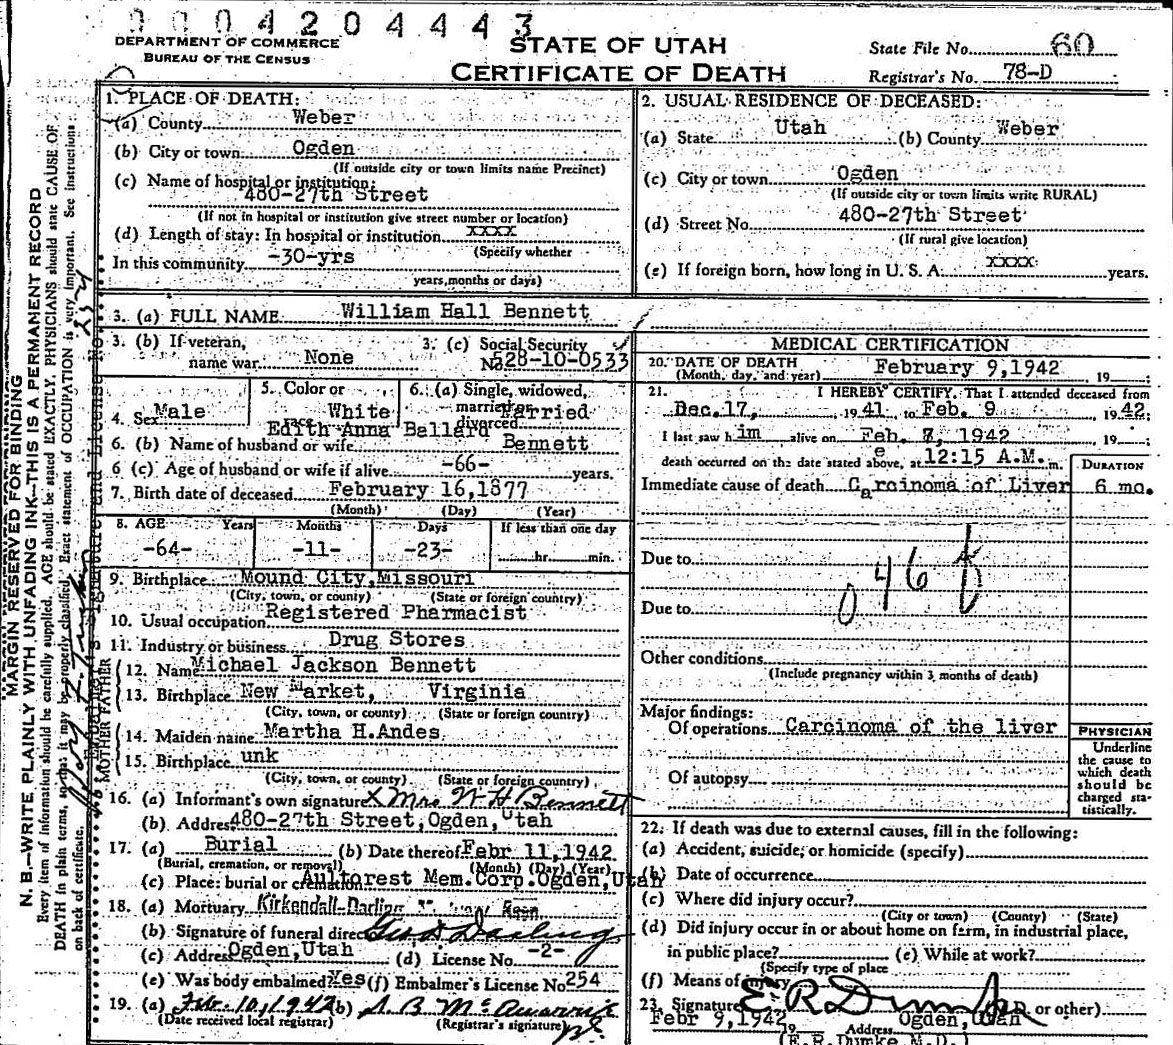 0004204443
DEPARTMENT OF COMMERCE
BUREAU OF THE CENSUS
STATE OF UTAH
CERTIFICATE OF DEATH
State File No. 60
Registrar's No. 78-D
MARGIN RESERVED FOR BINDING
N. B.—WRITE PLAINLY WITH UNFADING INK—THIS IS A PERMANENT RECORD
Every item of Information should be carefully supplied. AGE should be stated EXACTLY. PHYSICIANS should state CAUSE OF
DEATH in plain terms, so that it may be properly classified. Exact statement of OCCUPATION is very important. See instructions
on back of certificate.
1. PLACE OF DEATH:
(a) County Weber
(b) City or town Ogden
(If outside city or town limits name Precinct)
(c) Name of hospital or institution:
480-27th Street
(If not in hospital or institution give street number or location)
(d) Length of stay: In hospital or institution xxxx
(Specify whether
In this community -30-yrs
years, months or days)
2. USUAL RESIDENCE OF DECEASED:
(a) State Utah (b) County Weber
(c) City or town Ogden
(If outside city or town limits write RURAL)
(d) Street No. 480-27th Street
(If rural give location)
(e) If foreign born, how long in U. S. A. xxxx years.
3. (a) FULL NAME William Hall Bennett
3. (b) If veteran, name war None
3. (c) Social Security No. 528-10-0533
4. Sex Male
5. Color or race White
6. (a) Single, widowed, married or divorced Married
6. (b) Name of husband or wife Edith Anna Ballard Bennett
6 (c) Age of husband or wife if alive -66- years.
7. Birth date of deceased February 16,1877
(Month) (Day) (Year)
8. AGE Years Months Days If less than one day
-64- -11- -23- hr. min.
9. Birthplace Mound City,Missouri
(City, town, or county) (State or foreign country)
10. Usual occupation Registered Pharmacist
11. Industry or business Drug Stores
FATHER
12. Name Michael Jackson Bennett
13. Birthplace New Market, Virginia
(City, town, or county) (State or foreign country)
MOTHER
14. Maiden name Martha H.Andes
15. Birthplace unk
(City, town, or county) (State or foreign country)
16. (a) Informant's own signature X Mrs W H Bennett
(b) Address 480-27th Street,Ogden,Utah
17. (a) Burial (b) Date thereof Febr 11,1942
(Burial, cremation, or removal) (Month) (Day) (Year)
(c) Place: burial or cremation Aultorest Mem.Corp.Ogden,Utah
18. (a) Mortuary Kirkendall-Darling
(b) Signature of funeral director Geo D Darling
(c) Address Ogden,Utah (d) License No. -2-
(e) Was body embalmed? Yes (f) Embalmer's License No 254
19. (a) Feb. 10, 1942 (b)
(Date received local registrar) (Registrar's signature)
MEDICAL CERTIFICATION
20. DATE OF DEATH February 9,1942 19
(Month, day, and year)
21. I HEREBY CERTIFY, That I attended deceased from
Dec.17, 1941, to Feb. 9 1942;
I last saw him alive on Feb. 7, 1942 19
death occurred on the date stated above, at 12:15 A.M. m.
DURATION
Immediate cause of death Carcinoma of Liver 6 mo.
Due to
046f
Due to
Other conditions
(Include pregnancy within 3 months of death)
Major findings:
Of operations Carcinoma of the liver
Of autopsy
PHYSICIAN
Underline
the cause to
which death
should be
charged sta-
tistically.
22. If death was due to external causes, fill in the following:
(a) Accident, suicide, or homicide (specify)
(b) Date of occurrence
(c) Where did injury occur?
(City or town) (County) (State)
(d) Did injury occur in or about home on farm, in industrial place,
in public place? (e) While at work?
(Specify type of place
(f) Means of injury
23. Signature E R Dumke (M.D. or other)
Febr 9,1942 19 Address Ogden,Utah
(E.R.Dumke M.D.)